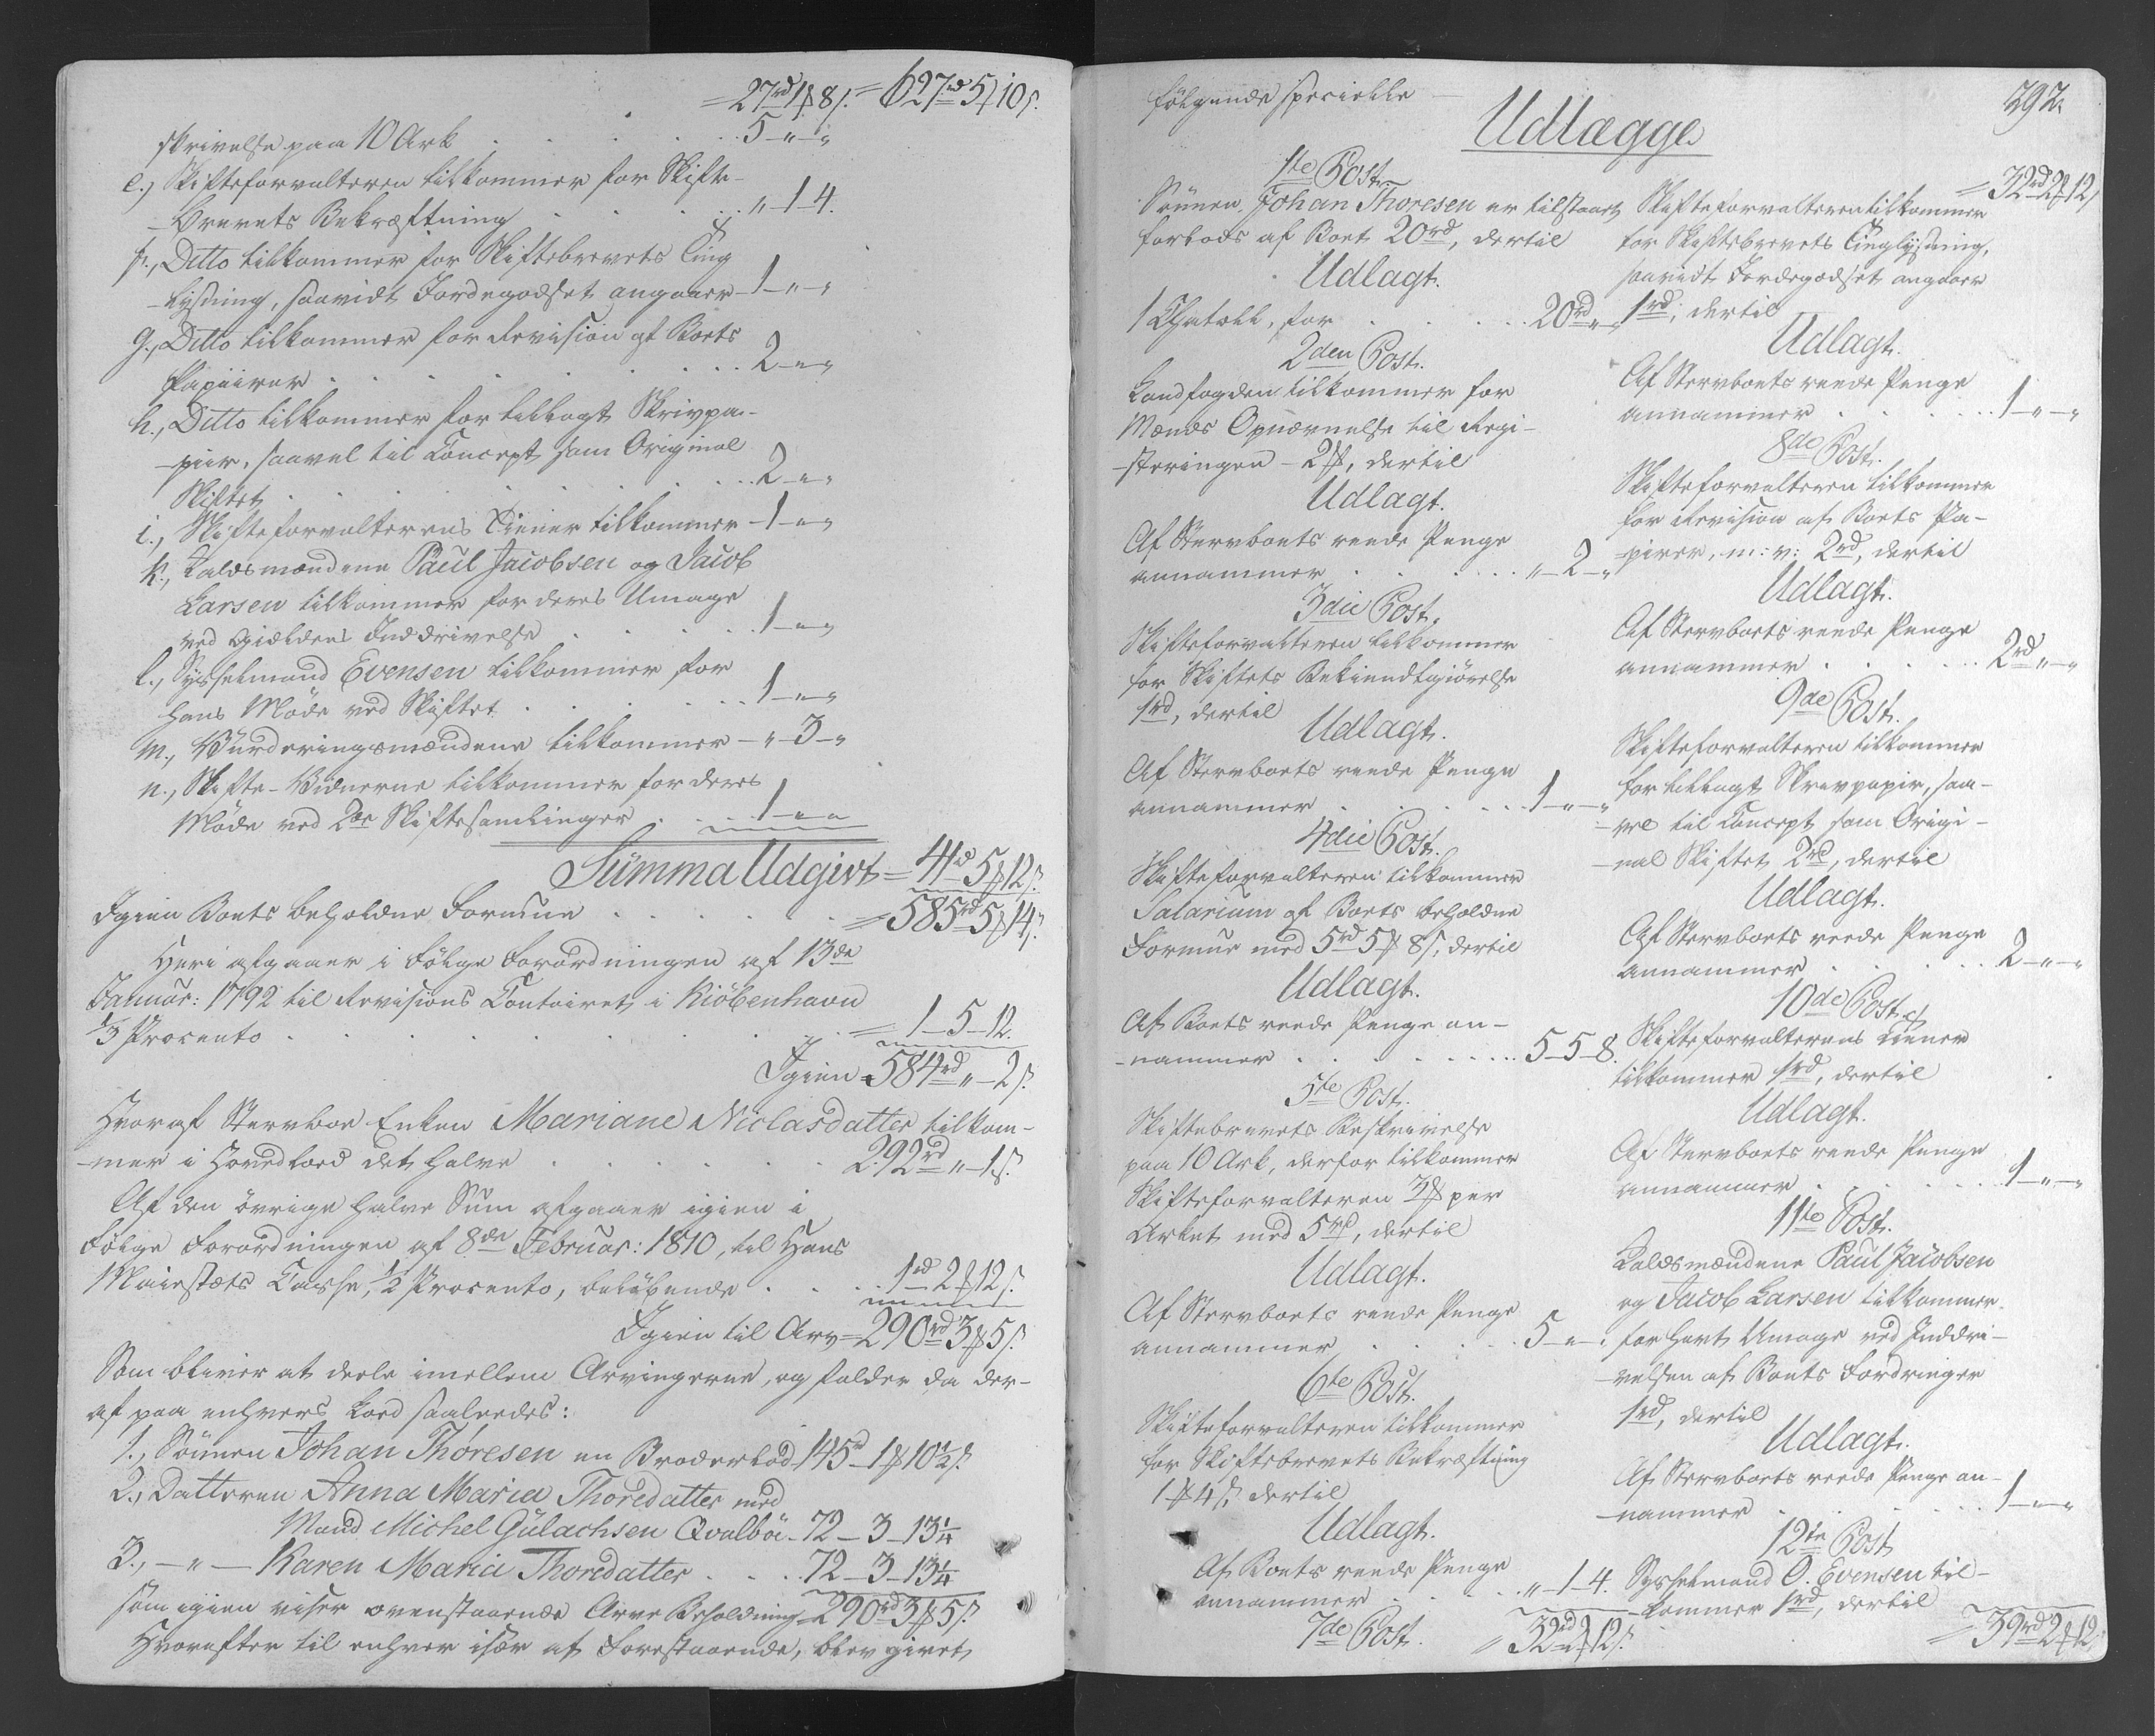 = 27rd 1₰ 8s. = 627rd 5₰ 10s.
skrivelse paa 10 Ark . . . . . 5 - „ - „
e., Skifteforvalteren tilkommer for Skifte-
- Brevets Bekræftning . . . . . „ - 1 - 4.
f., Ditto tilkommer for Skiftebrevets Ting
- lysning, saavidt Jordegodset angaaer - 1 - „ - „
g., Ditto tilkommer for Revision af Boets
Papiirer . . . . . . . 2 - „ - „
h., Ditto tilkommer for tillagt Skrivpa-
- piir, saavel til Concept som Original
Skiftet . . . . . . . 2 - „ - „
i., Skifteforvalterens Tiener tilkommer - 1 - „ - „
k., Laldsmændene Paul Jacobsen og Jacob
Larsen tilkommer for deres Umage
ved Giældens Inddrivelse . . . . 1 - „ - „
l., Sysselmand Evensen tilkommer for
hans Møde ved Skiftet . . . . . 1 - „ - „
m., Vurderingsmændene tilkommer - „ - 3 - „
n., Skifte-Vidnerne tilkommer for deres
Møde ved 2de Skiftesamlinger . . 1 - „ - „
Summa Udgivt = 41rd 5₰ 12s.
Igien Boets beholdne Formue . . . . . = 585rd 5₰ 14s.
Heri afgaaer i Følge Forordningen af 13de
Januar: 1792 til Revisions Contoiret i Kiöbenhavn
1/3 Procento . . . . . . . . = 1 - 5 - 12.
Igien = 584rd „ - 2s.
Hvoraf Stervboe Enken Mariane Niclasdatter tilkom-
- mer i Hovedlood det halve . . . . . 292rd „ - 1s.
Af den övrige halve Sum afgaaer igien i
Følge Forordningen af 8de Februar: 1810, til Hans
Majestæts Casse, 1/2 Procento, belöbende . . . 1rd 2₰ 12s.
Igien til Arv = 290rd 3₰ 5s.
Som bliver at deele imellem Arvingerne, og falder da der-
af paa enhvers Lood saaledes:
1., Sönnen Johan Thoresen en Broderlod 145rd - 1₰ 10½s.
2., Datteren Anna Maria Thoredatter med
Mand Michel Gulachsen Qvalböe - 72 - 3 - 13¼
3., - „ - Karen Maria Thoredatter . . . 72 - 3 - 13¼
som igien viser ovenstaaende Arve Beholdning 290rd 3₰ 5s.
Hvorefter til enhver især af Forestaaende, blev givet
292.
følgende specielle
Udlægge
1ste Post.
Sönnen Johan Thoresen er tilstaaet
forlods af Boet 20rd, dertil
Udlagt.
1 Chatoll, for . . . . 20rd „ - „
2den Post.
Landfogden tilkommer for
Mænds Opnævnelse til Regi-
- steringen - 2₰, dertil
Udlagt.
Af Stervboets reede Penge
annammer . . . . . „ - 2 - „
3die Post.
Skifteforvalteren tilkommer
for Skiftets Bekiendtgiörelse
1rd, dertil
Udlagt.
Af Stervboets reede Penge
annammer . . . . . 1 - „ - „
4die Post.
Skifteforvalteren tilkommer
Salarium af Boets beholdne
Formue med 5rd 5₰ 8s, dertil
Udlagt.
Af Boets reede Penge an-
- nammer . . . . . . 5 - 5 - 8.
5te Post.
Skiftebrevets Beskrivelse
paa 10 Ark, derfor tilkommer
Skifteforvalteren 3₰ per
Arket med 5rd, dertil
Udlagt.
Af Stervboets reede Penge
annammer . . . . 5 - „ - „
6te Post.
Skifteforvalteren tilkommer
for Skiftebrevets Bekræftning
1₰ 4s, dertil
Udlagt.
Af Boets reede Penge
annammer . . . . „ - 1 - 4.
7de Post. = 32rd 2₰ 12s.
= 32rd 2₰ 12s
Skifteforvalteren tilkommer
for Skiftebrevets Tinglysning,
saavidt Jordegodset angaaer
1rd, dertil
Udlagt.
Af Stervboets reede Penge
annammer . . . . . 1 - „ - „
8de Post.
Skifteforvalteren tilkommer
for Revision af Boets Pa-
- pirer, m: v: 2rd, dertil
Udlagt.
Af Stervboets reede Penge
annammer . . . . . 2rd „ - „
9de Post.
Skifteforvalteren tilkommer
for tillagt Skrivpapir, saa-
- vel til Concept som Origi-
- nal Skiftet 2rd, dertil
Udlagt.
Af Stervboets reede Penge
annammer . . . . . 2 - „ - „
10de Post.
Skifteforvalterens Tiener
tilkommer 1rd, dertil
Udlagt.
Af Stervboets reede Penge
annammer . . . . . 1 - „ - „
11te Post.
Laldsmændene Paul Jacobsen
og Jacob Larsen tilkommer
for havt Umage ved Inddri-
- velsen af Boets Fordringer
1rd, dertil
Udlagt.
Af Stervboets reede Penge an-
- nammer . . . . . 1 - „ - „
12te Post
Sysselmand O. Evensen til-
- kommer 1rd, dertil
= 39rd 2₰ 12